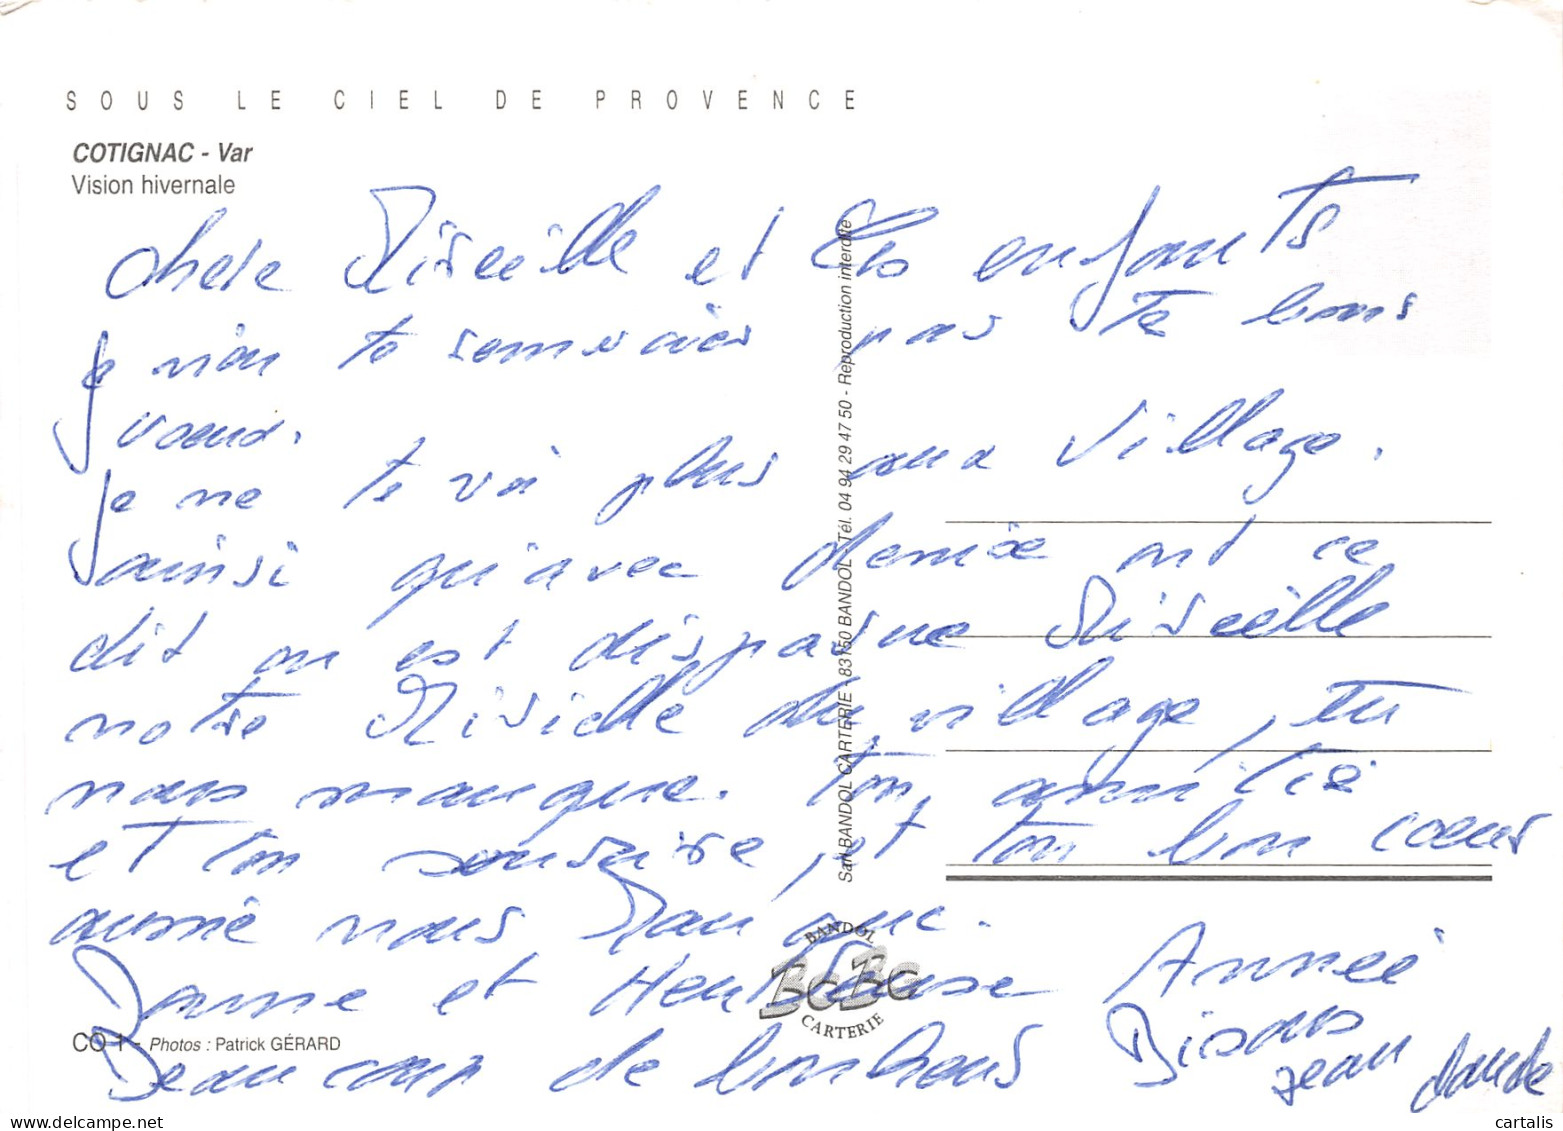 SOUS LE CIEL DE PROVENCE
COTIGNAC - Var
Vision hivernale
chere Mireille et tes enfants
je vien te remercier pas te bons
voeux.
je ne te voi plus aux village.
ainsi qu'avec denise ont ce
dit on est disparue Mireille
notre Mireille du village, tu
nous manque. ton amitié
et ton sourire, et ton bon coeur
aussie nous manque.
Bonne et Heureuse Année
Beaucoup de bonheur Bisous
jean claude
Sarl BANDOL CARTERIE - 83150 BANDOL Tél. 04 94 29 47 50 - Reproduction interdite
BANDOL
BcBg
CARTERIE
CO 1 - Photos : Patrick GÉRARD
cartalis